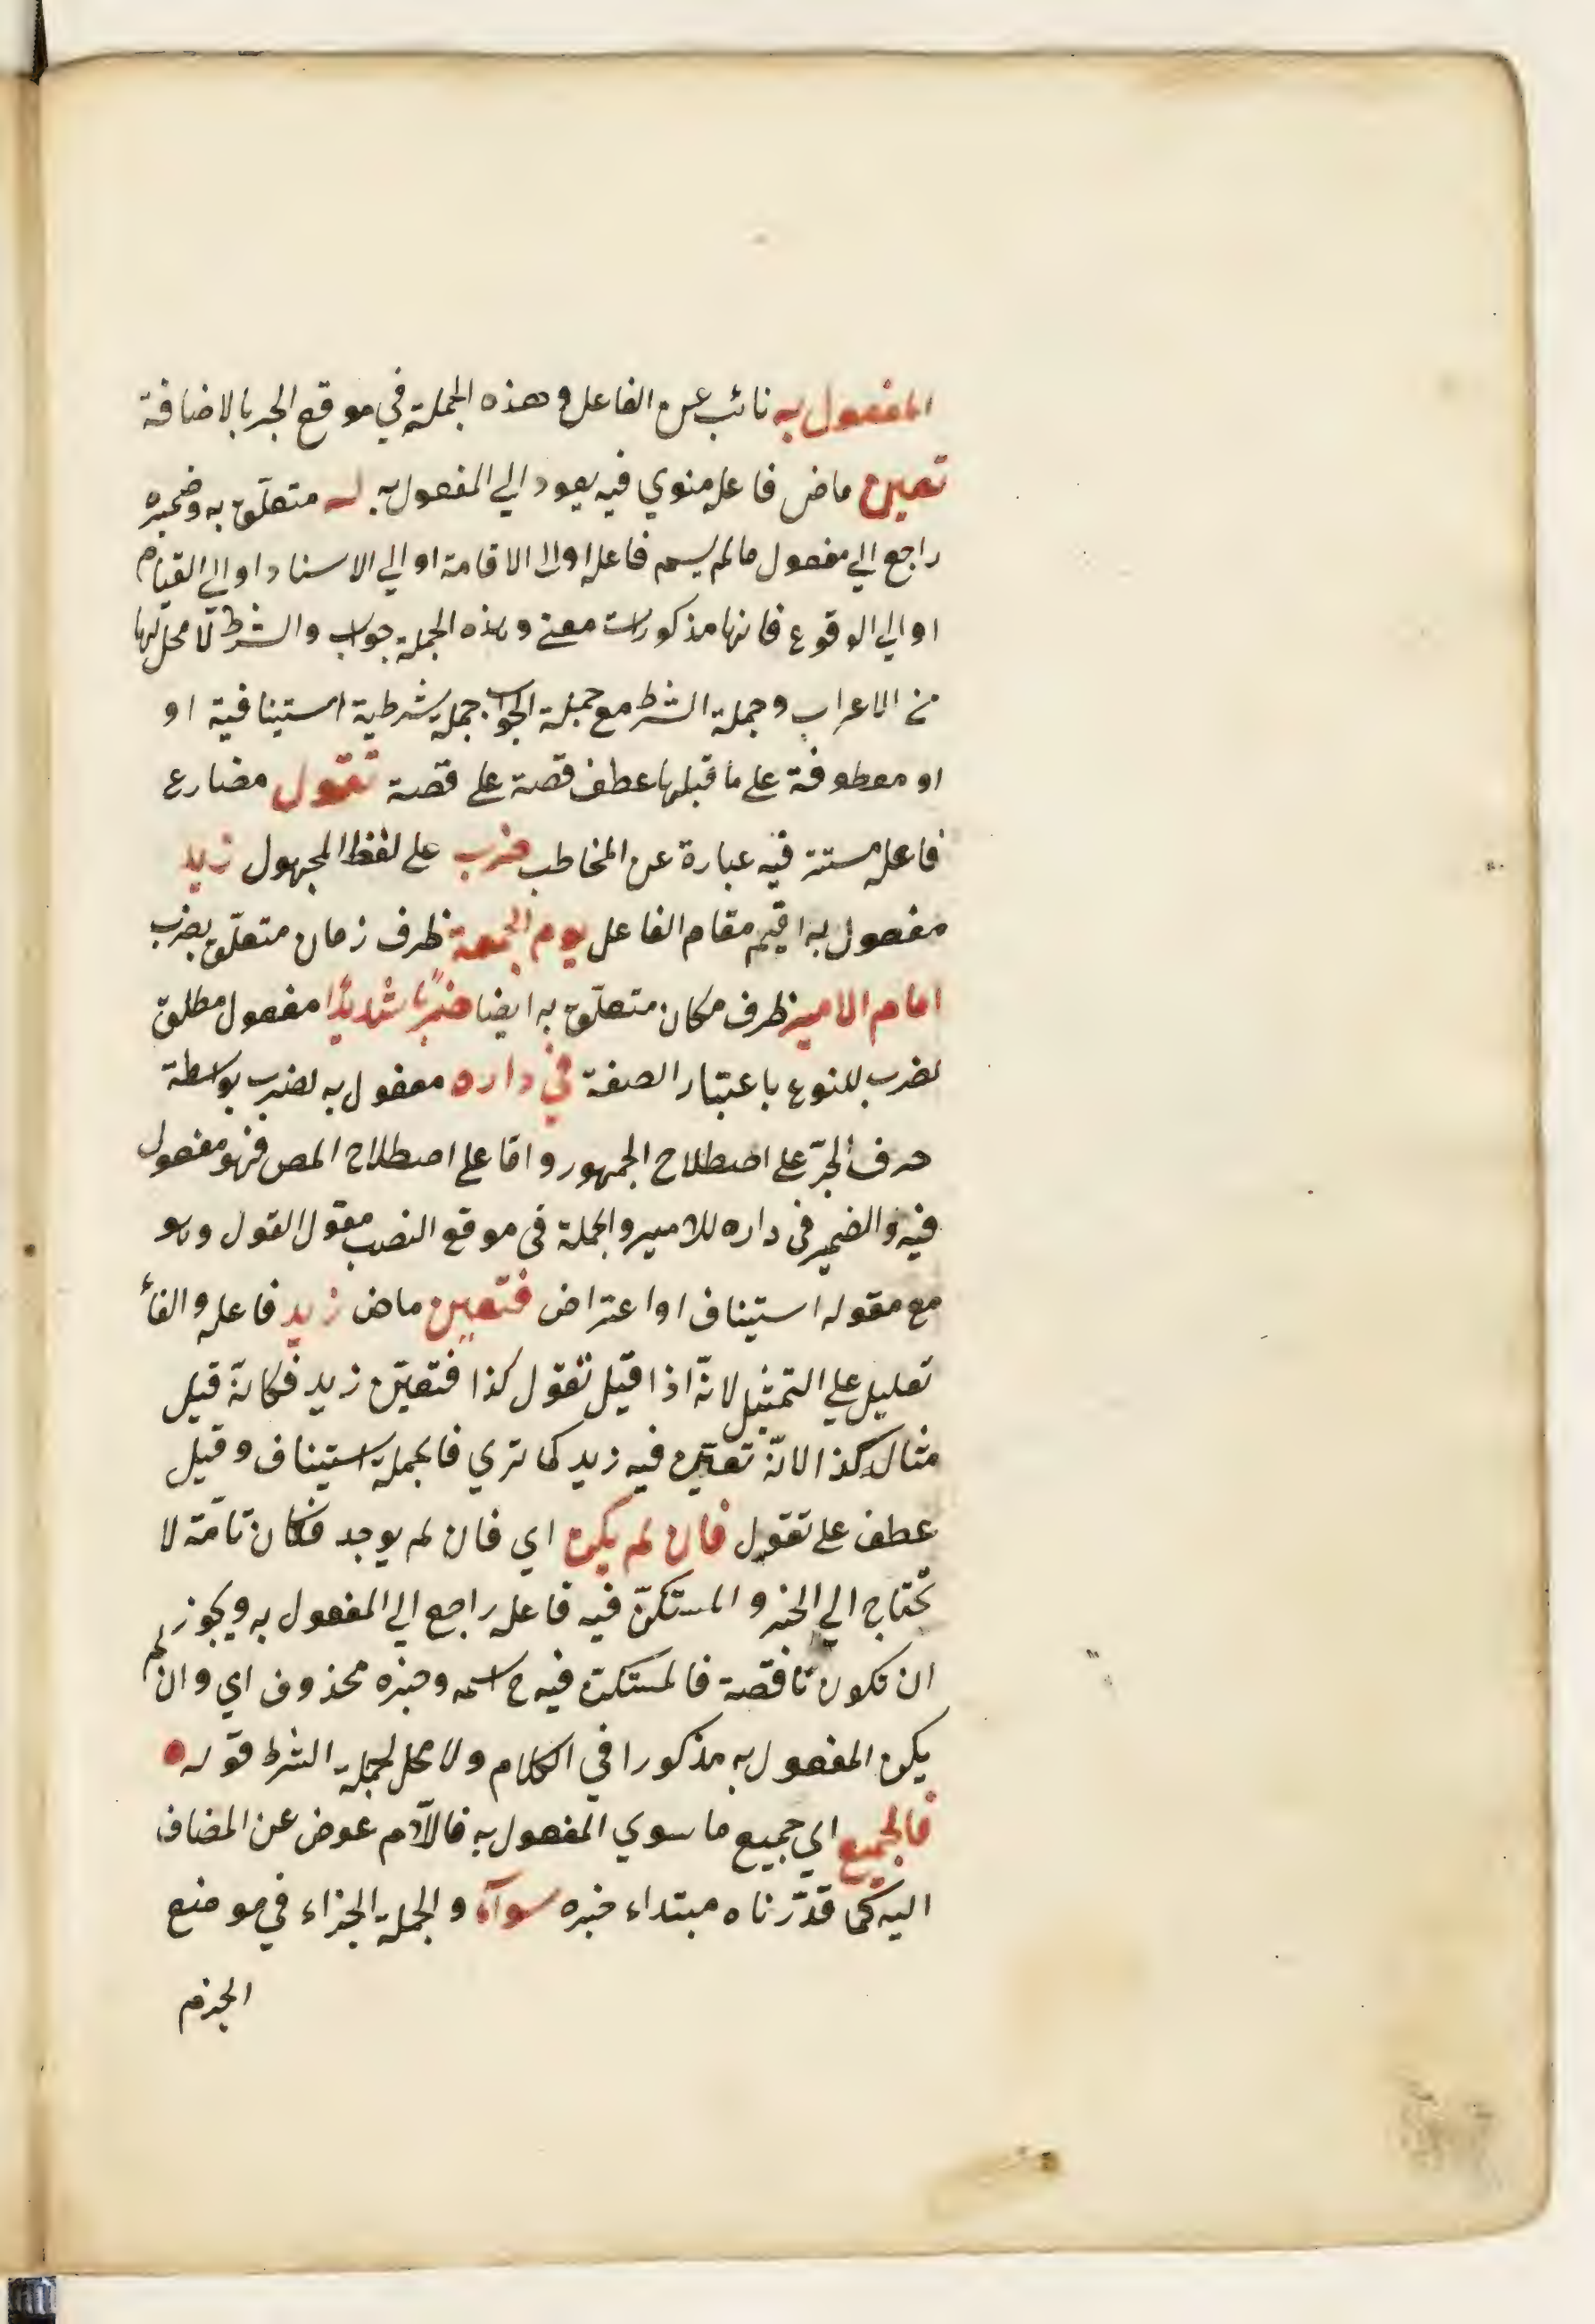 المفعول به نائب عن الفاعل وهذه الجملة في موقع الجر بالاضافة
تعين ماض فاعله منوي فيه يعود الي المفعول به له متعلّق به وضميره
راجع الي مفعول مالم يسم فاعله او الي الاقامة او الي الاسناد او الي القيام
او الي الوقوع فانها مذكورات معني وهذه الجملة جواب والشرط لا محل لها
من الاعراب وجملة الشرط مع جملة الجواب جملة شرطية استينافية او
او معطوفة علي ما قبلها عطف قصة علي قصة تقول مضارع
فاعله مستتر فيه عبارة عن المخاطب ضرب علي لفظ المجهول زيد
مفعول به اقيم مقام الفاعل يوم الجمعة ظرف زمان متعلّق بضرب
امام الامير ظرف مكان متعلّق به ايضا ضربًا شديدًا مفعول مطلق
لضرب للنوع باعتبار الصفة في داره مفعول به لضرب بواسطة
حرف الجرّ علي اصطلاح الجمهور وامّا علي اصطلاح المص فهو مفعول
فيه والضمير في داره للامير والجملة في موقع النصب مقول القول وهو
مع مقوله استيناف او اعتراض فتعين ماض زيد فاعله والفاء
تعليل علي التمثيل لانّه اذا قيل تقول كذا فتعيّن زيد فكانّه قيل
مثاله كذا لانّه تعيّن فيه زيد كما تري فالجملة استيناف وقيل
عطف علي تقول فان لم يكن اي فان لم يوجد فكان تامّة لا
تحتاج الي الخبر والمستكنّ فيه فاعله راجع الي المفعول به ويجوز
ان تكون ناقصة فالمستكن فيه ح اسمه وخبره محذوف اي وان لم
يكن المفعول به مذكورا في الكلام ولا محل لجملة الشرط قوله
فالجميع اي جميع ما سوي المفعول به فاللّام عوض عن المضاف
اليه كما قدّرناه مبتداء خبره سوآء والجملة الجزاء في موضع
الجزم